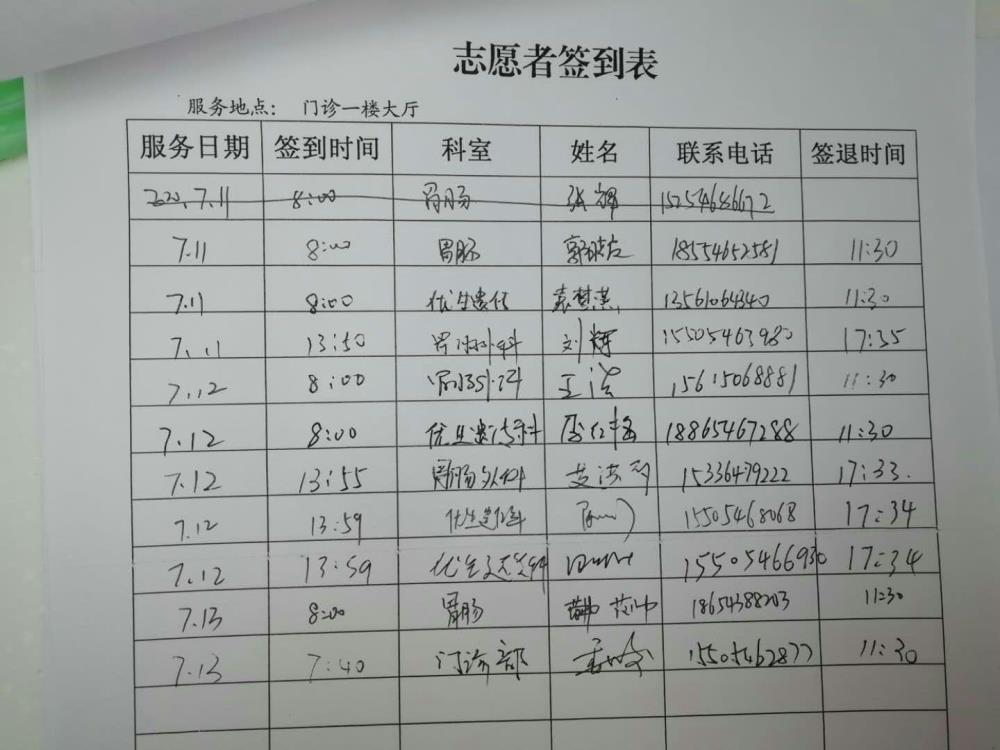 志愿者签到表
服务地点： 门诊一楼大厅
服务日期 签到时间 科室 姓名 联系电话 签退时间
2020.7.11 8:00 胃肠 张辉 15254686672
7.11 8:00 胃肠 18554652581 11:30
7.11 8:00 优生遗传 袁梦洪 13561064340 11:30
7.11 13:50 胃肠外科 刘辉 15505463980 17:35
7.12 8:00 胃肠外科 王浩 15615068881 11:30
7.12 8:00 优生遗传科 18865467288 11:30
7.12 13:55 胃肠外科 15336479222 17:33.
7.12 13:59 优生遗传科 15505468068 17:34
7.12 13:59 优生遗传科 15505466930 17:34
7.13 8:00 胃肠 18654388203 11:30
7.13 7:40 门诊部 15505462877 11:30